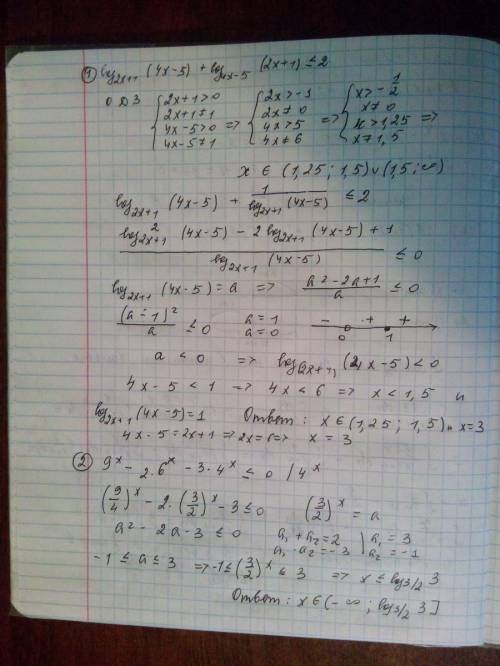 1) log₂ₓ₊₁ (4x-5) + log₄ₓ₋₅ (2x+1) ≤ 2
ОДЗ { 2x+1>0 ; 2x+1≠1 ; 4x-5>0 ; 4x-5≠1 => { 2x>-1 ; 2x≠0 ; 4x>5 ; 4x≠6 => { x>-1/2 ; x≠0 ; x>1,25 ; x≠1,5 =>
x ∈ (1,25; 1,5) ∪ (1,5; ∞)
log₂ₓ₊₁ (4x-5) + 1/(log₂ₓ₊₁ (4x-5)) ≤ 2
(log²₂ₓ₊₁ (4x-5) - 2 log₂ₓ₊₁ (4x-5) + 1)/(log₂ₓ₊₁ (4x-5)) ≤ 0
log₂ₓ₊₁ (4x-5) = a => (a²-2a+1)/a ≤ 0
(a-1)²/a ≤ 0 a=1 a=0 - + + 0 1
a < 0 => log₂ₓ₊₁ (4x-5) < 0
4x-5 < 1 => 4x < 6 => x < 1,5 и
log₂ₓ₊₁ (4x-5) = 1 Ответ: x ∈ (1,25; 1,5) и x=3
4x-5=2x+1 => 2x=6 => x=3
2) 9ˣ - 2·6ˣ - 3·4ˣ ≤ 0 /4ˣ
(9/4)ˣ - 2·(3/2)ˣ - 3 ≤ 0 (3/2)ˣ = a
a² - 2a - 3 ≤ 0 a₁+a₂=2 | a₁=3
a₁·a₂=-3 | a₂=-1
-1 ≤ a ≤ 3 => -1 ≤ (3/2)ˣ ≤ 3 => x ≤ log₃/₂ 3
Ответ: x ∈ (-∞; log₃/₂ 3]